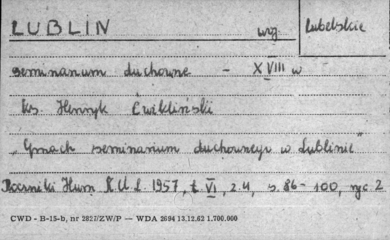 LUBLIN woj. Lubelskie
seminarium duchowne - XVIII w
ks. Henryk Ćwikliński
"Gmach seminarium duchownego w Lublinie"
Roczniki Hum. K.U.L. 1957, t. VI, z. 4, s. 86-100, ryc. 2
CWD - B-15-b, nr 2827/ZW/P — WDA 2694 13.12.62 1.700.000